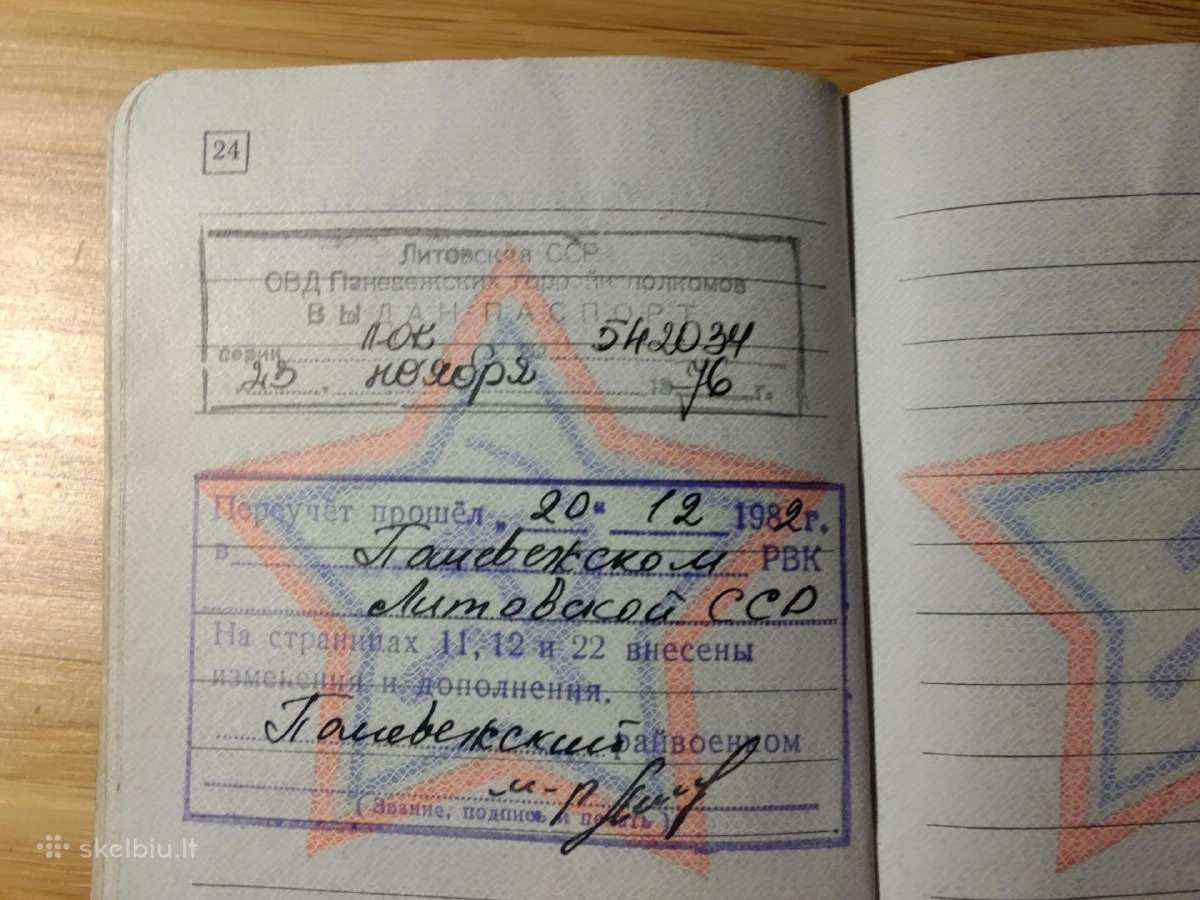 24
Литовская ССР
ОВД Паневежских горрайисполкомов
ВЫДАН ПАСПОРТ
серии 542034
23. ноября 1976 г.
Переучёт прошёл „20“ 12 1982 г.
в Паневежском РВК
Литовской ССР
На страницах 11, 12 и 22 внесены
изменения и дополнения.
Паневежский райвоенком
м-р
(Звание, подпись и печать)
skelbiu.lt